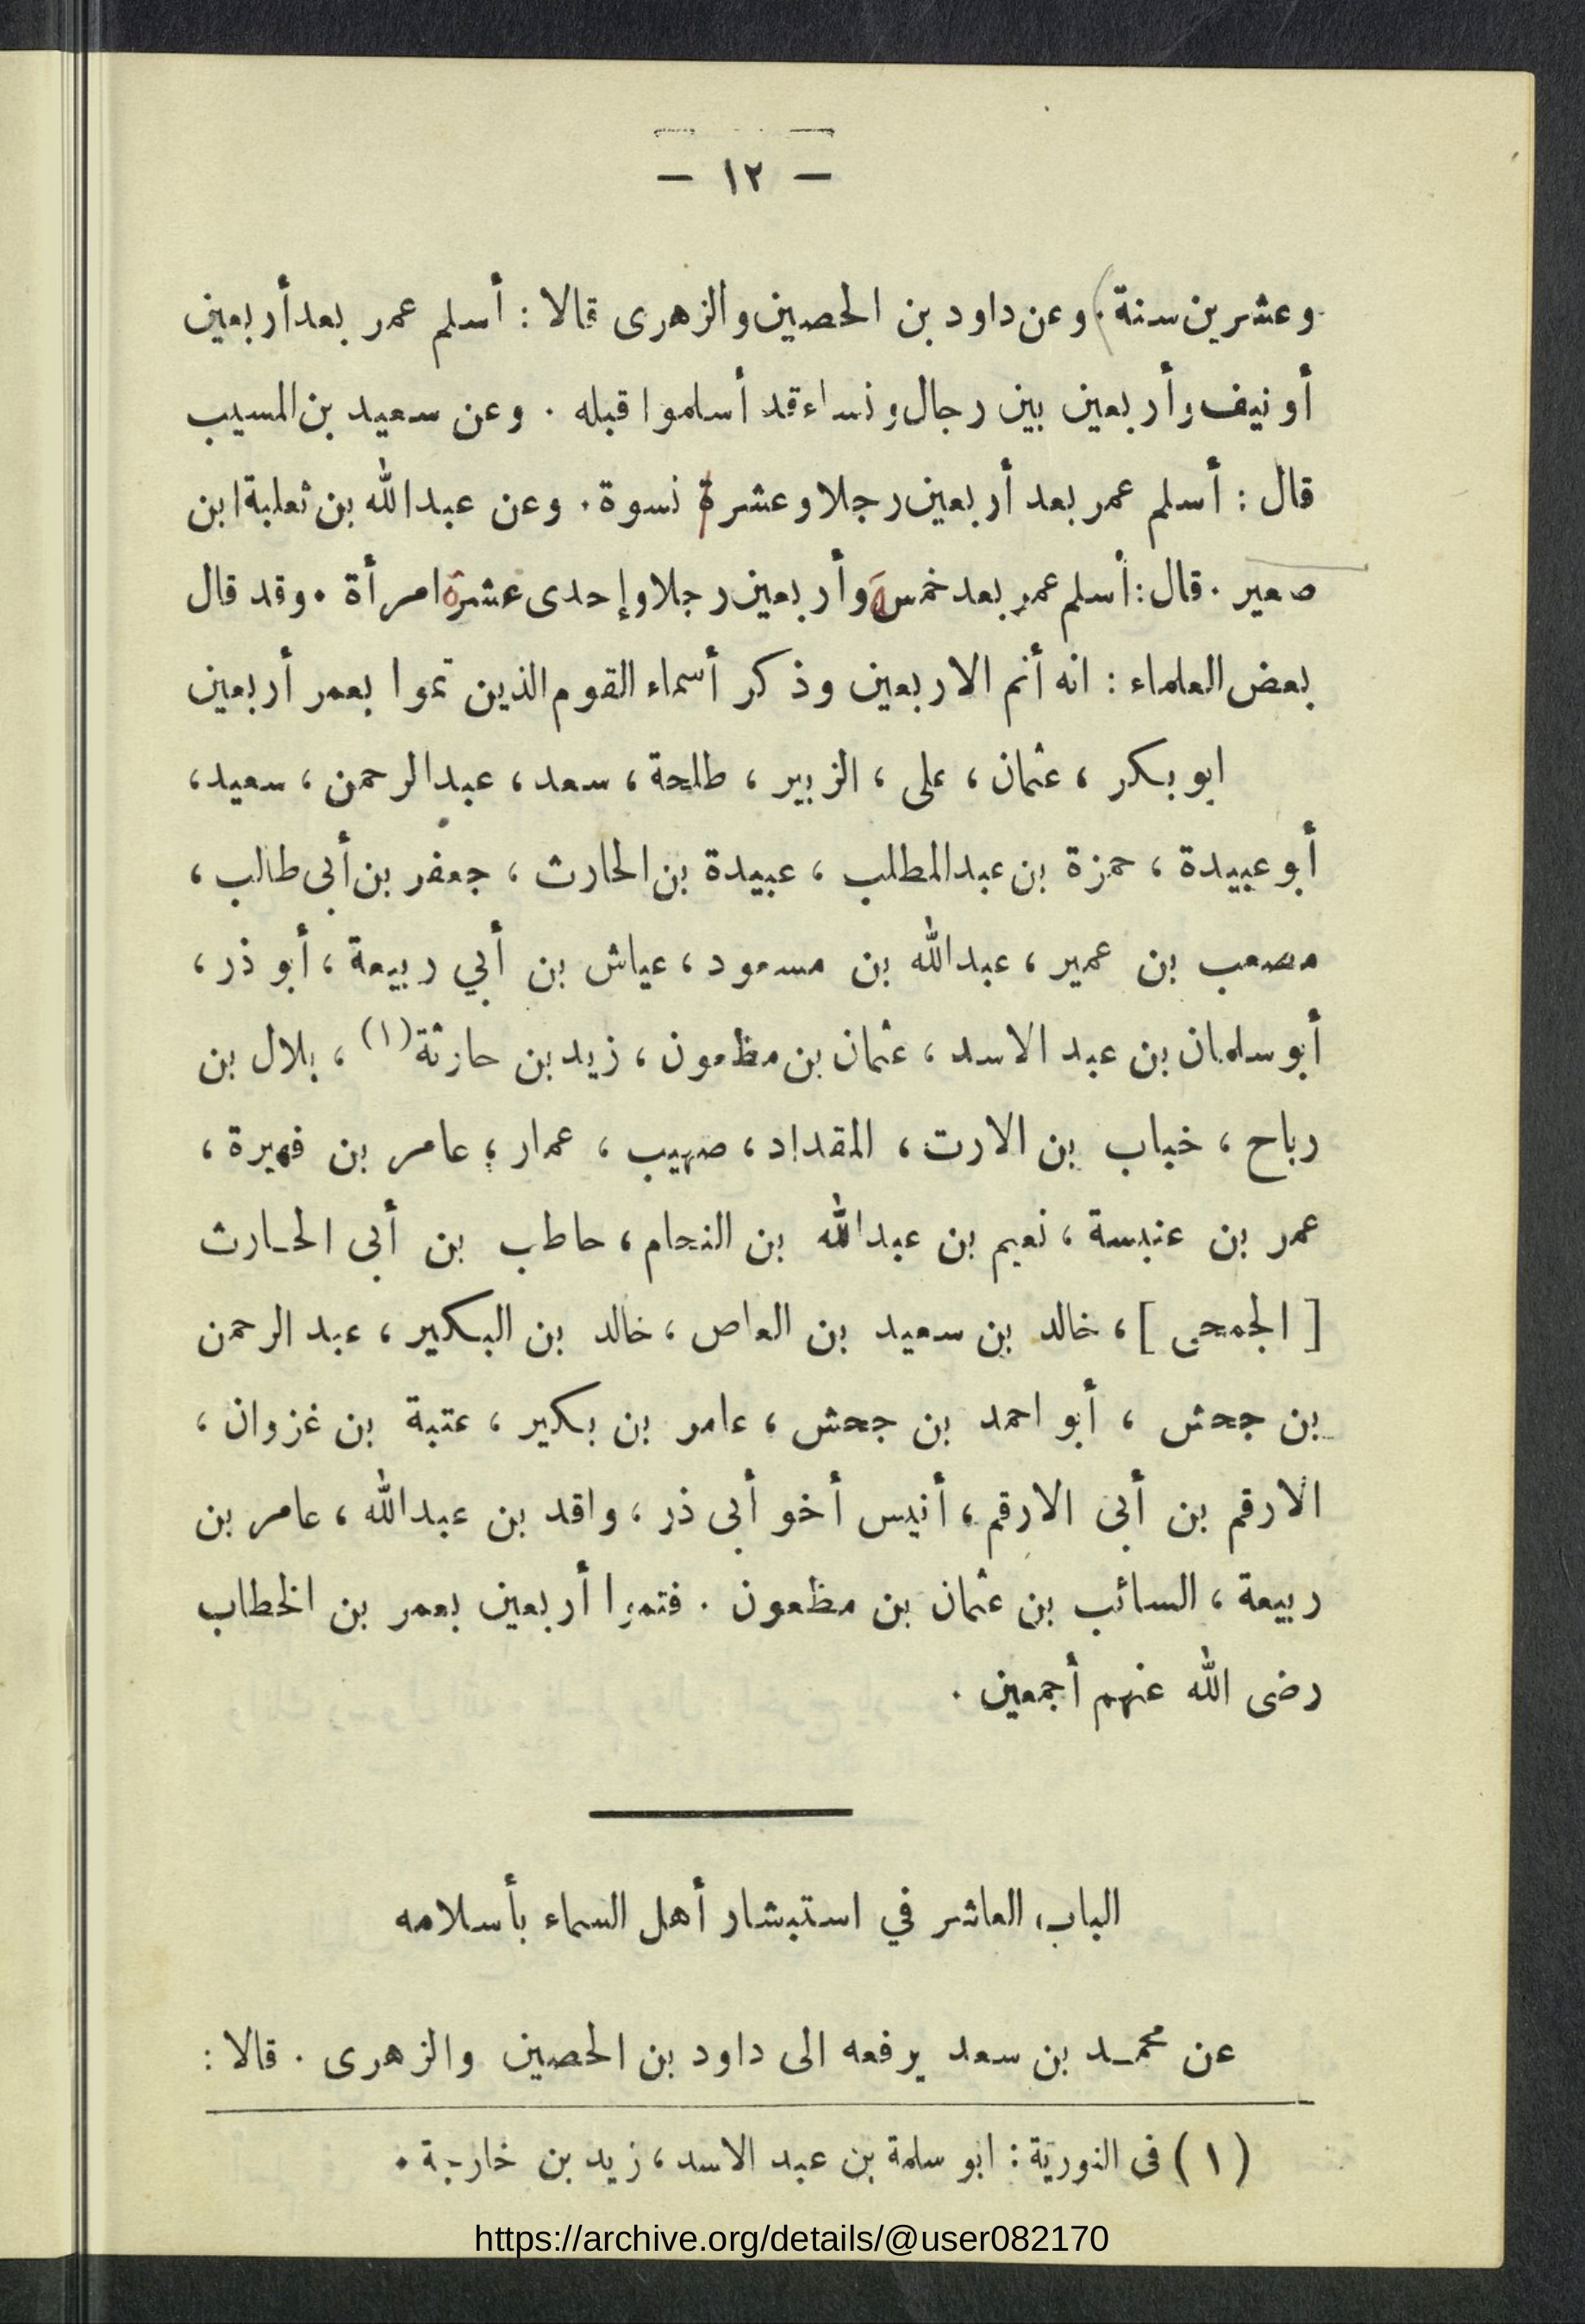 — ١٢ —
وعشرين سنة). وعن داود بن الحصين والزهرى قالا : أسلم عمر بعد أربعين
أو نيف وأربعين بين رجال ونساء قد أسلموا قبله . وعن سعيد بن المسيب
قال : أسلم عمر بعد أربعين رجلا وعشرة نسوة . وعن عبدالله بن ثعلبة ابن
صعير . قال : أسلم عمر بعد خمسة وأربعين رجلا وإحدى عشرة امرأة . وقد قال
بعض العلماء : انه أتم الاربعين وذكر أسماء القوم الذين تموا بعمر أربعين
ابو بكر ، عثمان ، على ، الزبير ، طلحة ، سعد ، عبدالرحمن ، سعيد ،
أبو عبيدة ، حمزة بن عبدالمطلب ، عبيدة بن الحارث ، جعفر بن أبى طالب ،
مصعب بن عمير ، عبدالله بن مسعود ، عياش بن أبي ربيعة ، أبو ذر ،
أبو سلمان بن عبد الاسد ، عثمان بن مظعون ، زيد بن حارثة (١) ، بلال بن
رباح ، خباب بن الارت ، المقداد ، صهيب ، عمار ، عامر بن فهيرة ،
عمر بن عنبسة ، نعيم بن عبدالله بن النحام ، حاطب بن أبى الحارث
[ الجمحى ] ، خالد بن سعيد بن العاص ، خالد بن البكير ، عبد الرحمن
بن جحش ، أبو احمد بن جحش ، عامر بن بكير ، عتبة بن غزوان ،
الارقم بن أبى الارقم ، أنيس أخو أبى ذر ، واقد بن عبدالله ، عامر بن
ربيعة ، السائب بن عثمان بن مظعون . فتموا أربعين بعمر بن الخطاب
رضى الله عنهم أجمعين .
الباب العاشر في استبشار أهل السماء بأسلامه
عن محمد بن سعد يرفعه الى داود بن الحصين والزهرى . قالا :
(١) فى النورية : ابو سلمة بن عبد الاسد ، زيد بن خارجة .
https://archive.org/details/@user082170